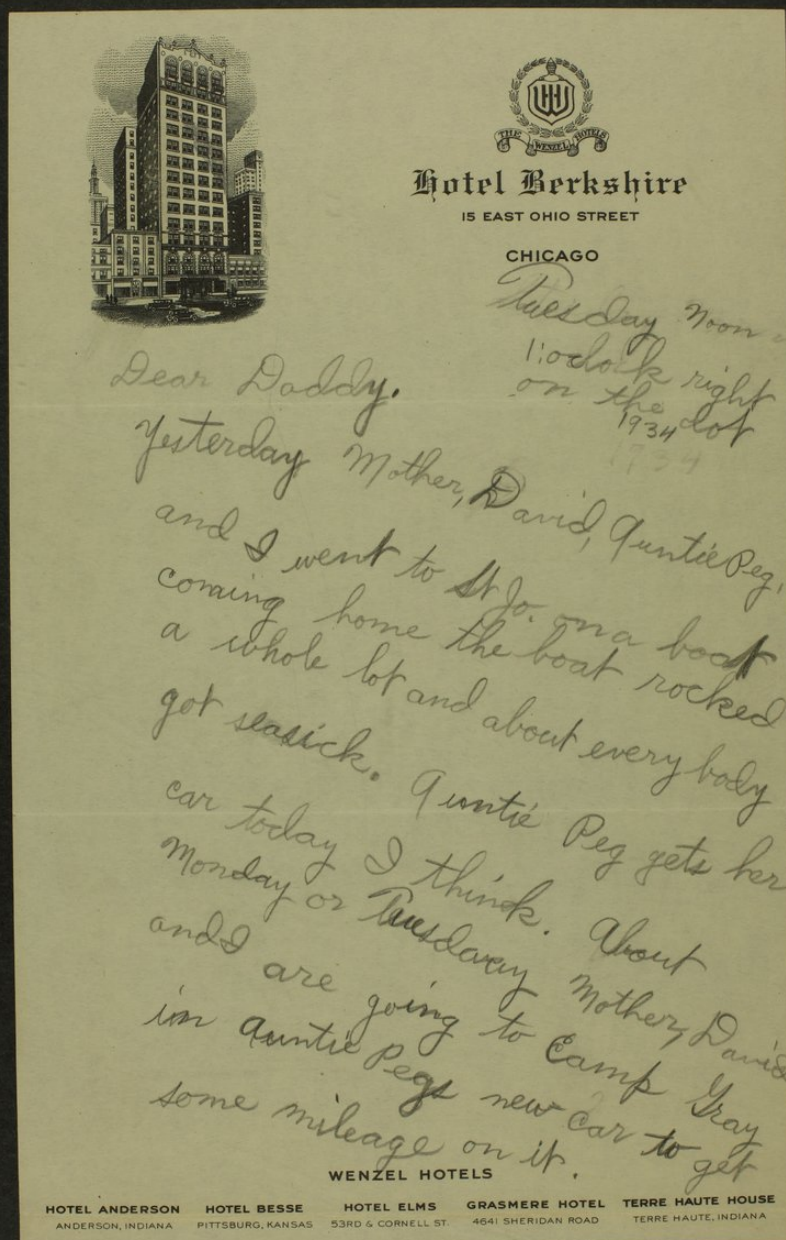 THE WENZEL HOTELS
Hotel Berkshire
15 EAST OHIO STREET
CHICAGO
Tuesday Noon
1:oclock right
on the dot
1934
1934
Dear Daddy.
Yesterday Mother, David, Auntie Peg,
and I went to St Jo. on a boat
coming home the boat rocked
a whole lot and about everybody
got seasick. Auntie Peg gets her
car today I think. About
Monday or Tuesday Mother, David
and I are going to Camp Gray
in Auntie Pegs new car to get
some mileage on it.
WENZEL HOTELS
HOTEL ANDERSON HOTEL BESSE HOTEL ELMS GRASMERE HOTEL TERRE HAUTE HOUSE
ANDERSON, INDIANA PITTSBURG, KANSAS 53RD & CORNELL ST. 4641 SHERIDAN ROAD TERRE HAUTE, INDIANA